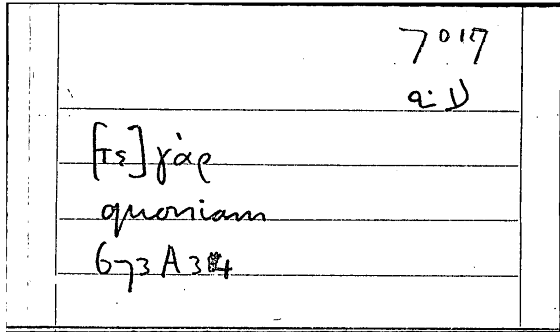 7017
[τε] γὰρ
quoniam
673A34